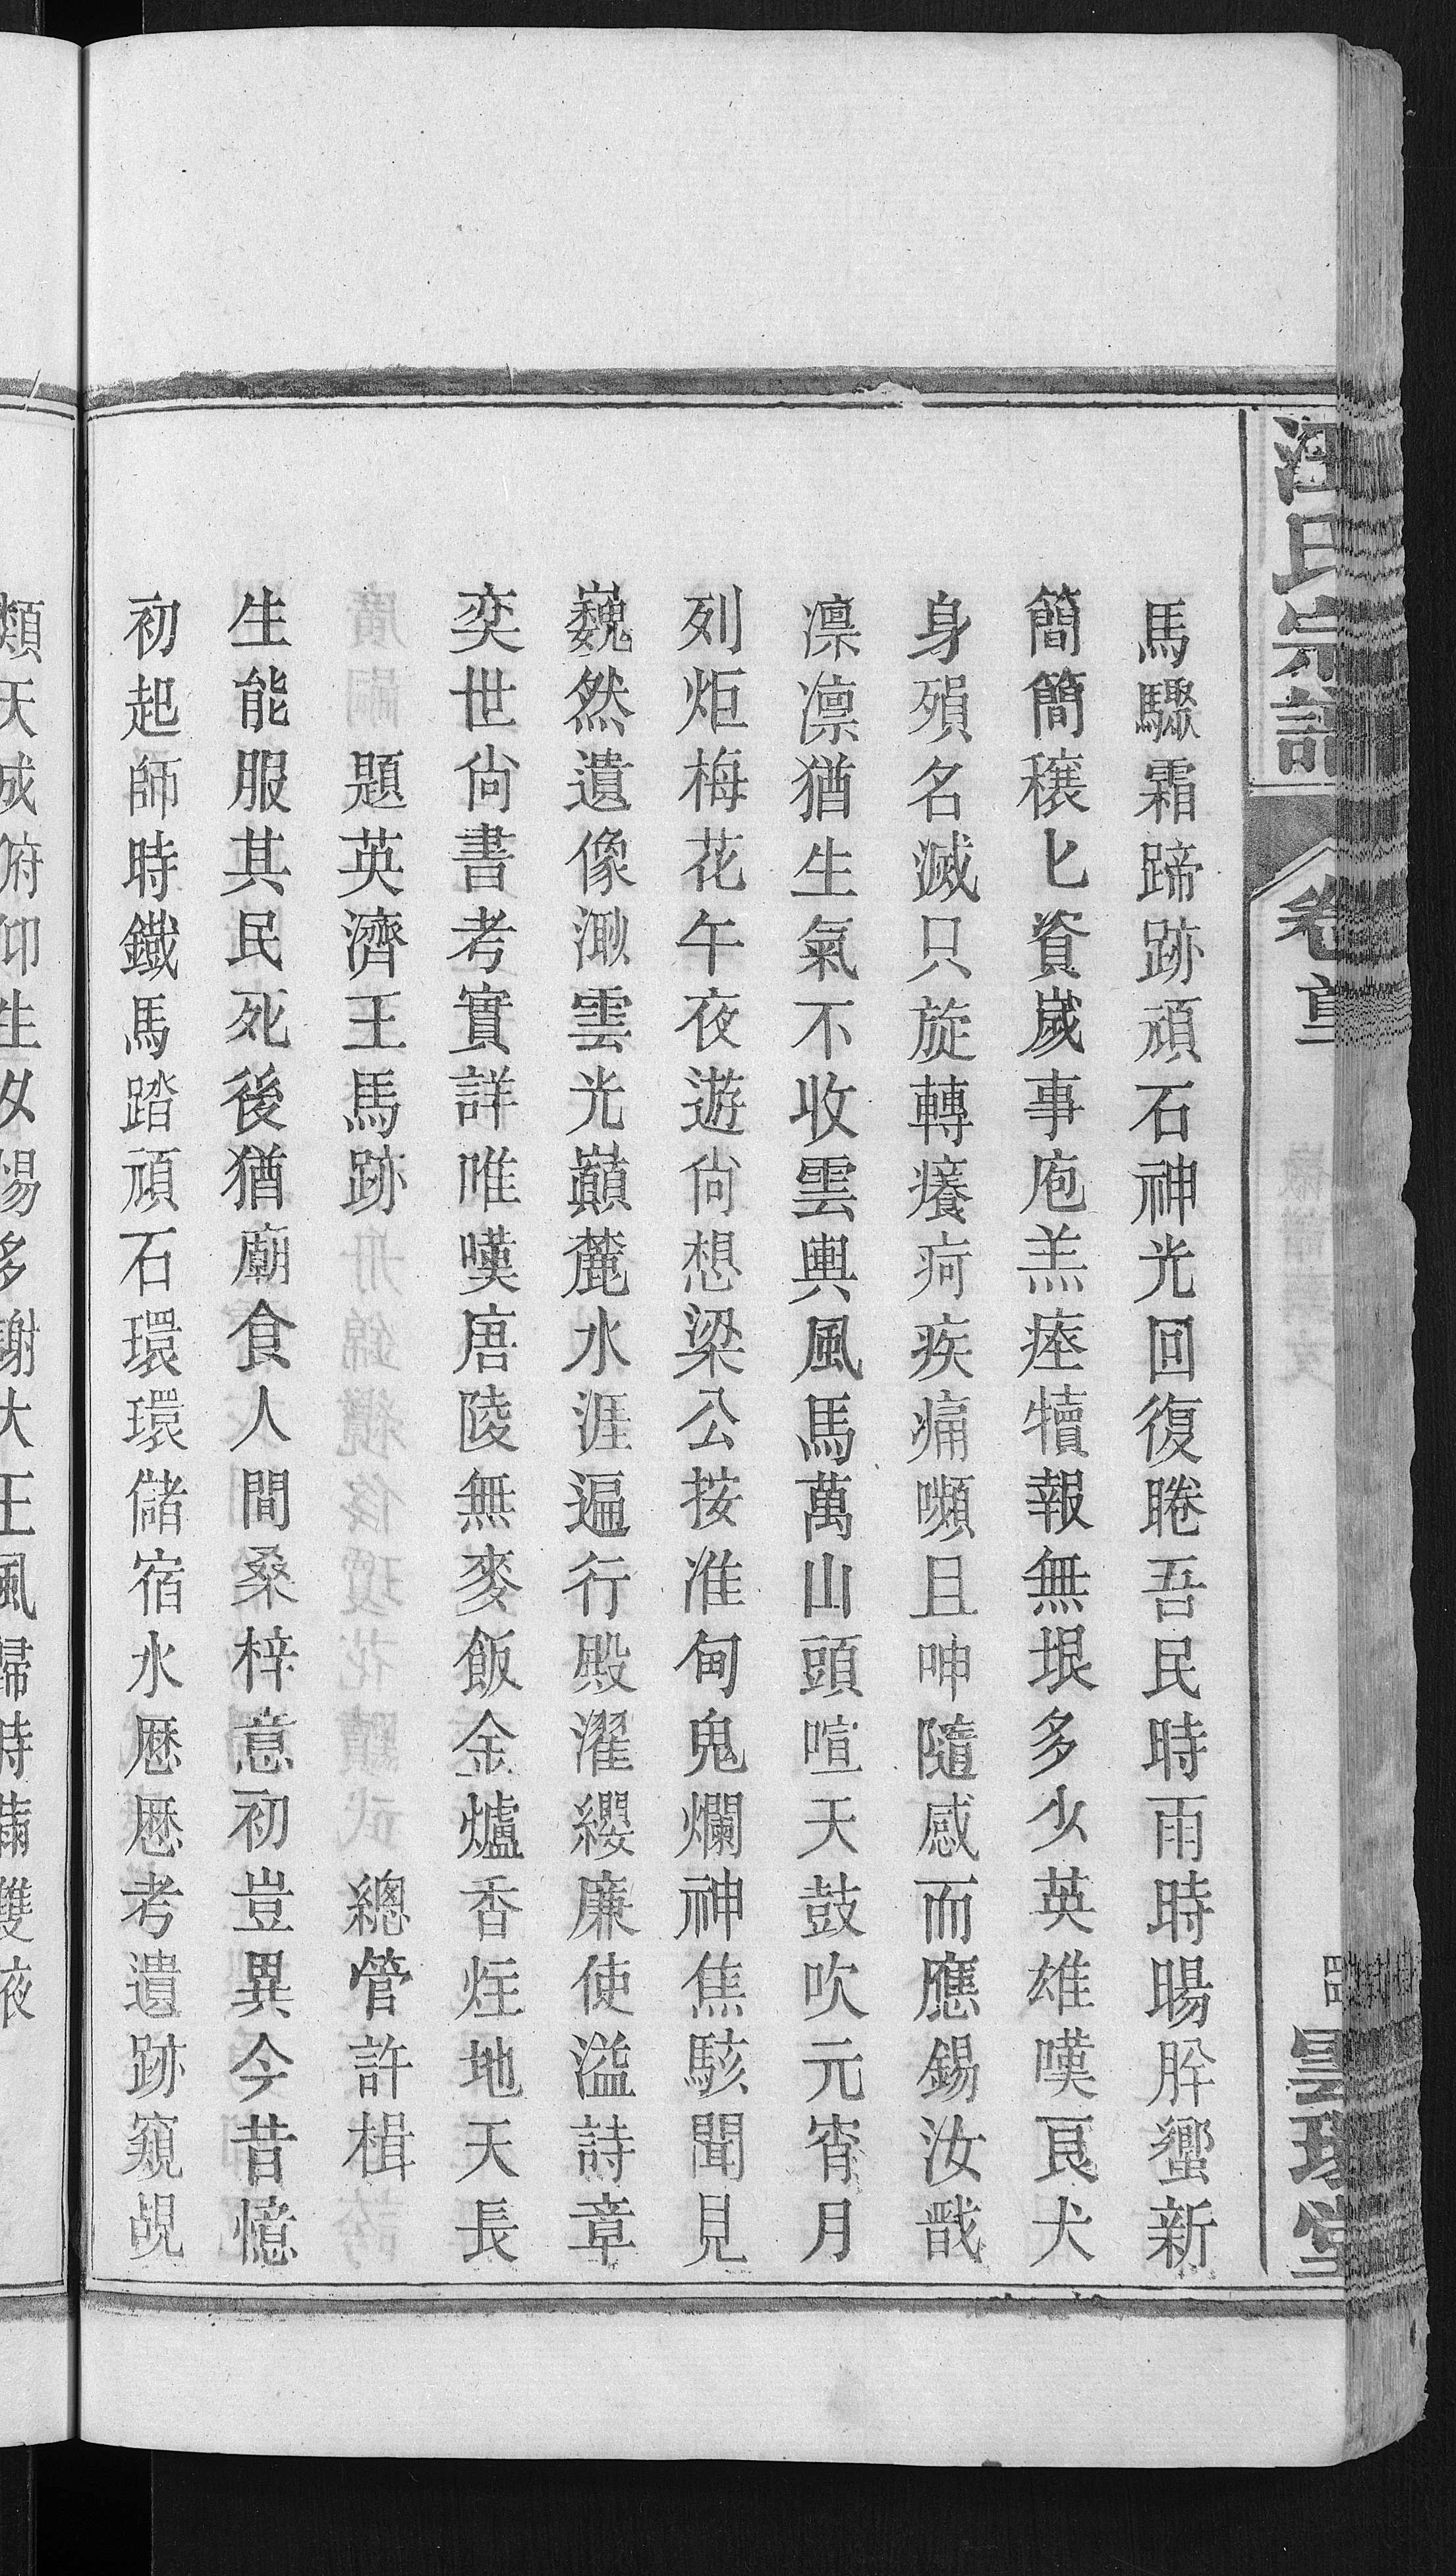 汪氏宗譜
卷首
雲環堂
馬驟霜蹄跡頑石神光回復睠吾民時雨時暘肸蠁新
簡簡穰匕資歲事庖羔瘞犢報無垠多少英雄嘆艮犬
身殞名滅只旋轉癢疴疾痛嚬且呻隨感而應錫汝戩
凛凛猶生氣不收雲輿風馬萬山頭喧天鼓吹元宵月
列炬梅花午夜遊尙想梁公按准甸鬼爛神焦駭聞見
巍然遺像溆雲光巔麓水涯遍行殿濯纓廉使溢詩章
奕世尙書考實詳唯嘆唐陵無麥飯金爐香炷地天長
題英濟王馬跡
總管許楫
生能服其民死後猶廟食人間桑梓意初豈異今昔憶
初起師時鐵馬踏頑石環環儲宿水厯厯考遺跡窺覘